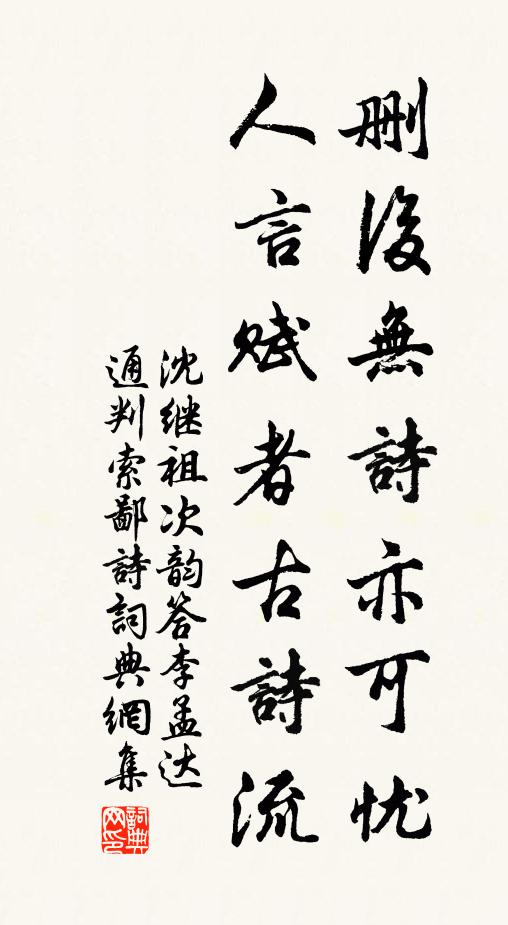 删後無詩亦可忧
人言赋者古詩流
沈继祖次韵答李孟达
通判索鄙詩詞典網集
詞典网印